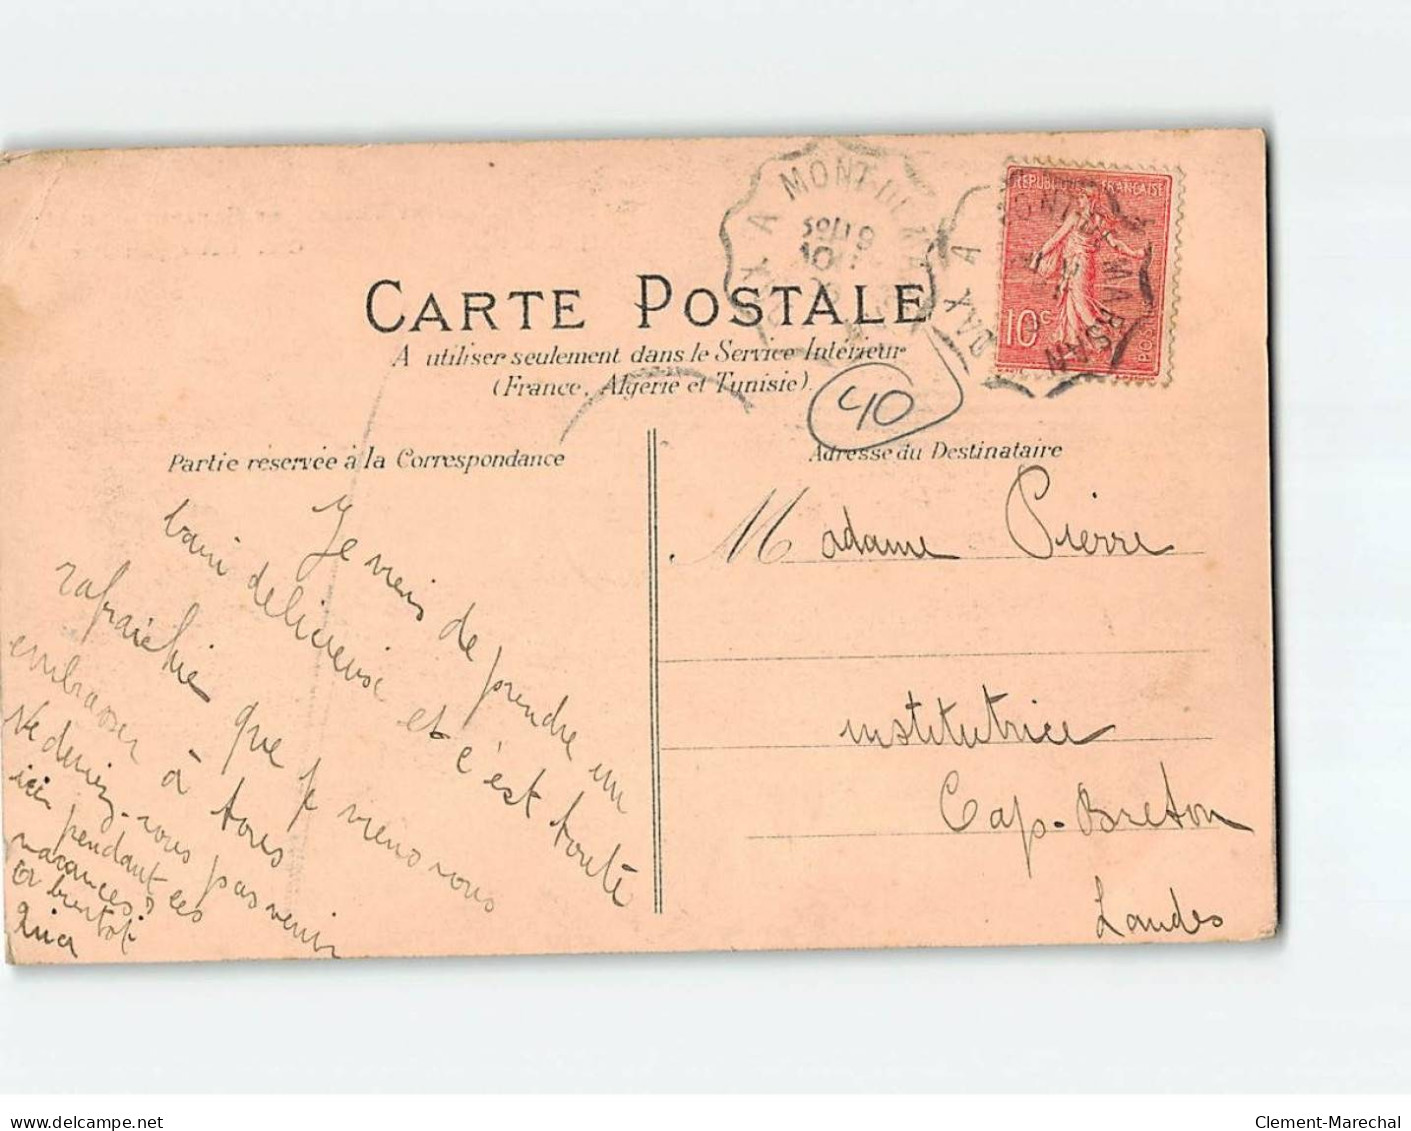 RÉPUBLIQUE FRANÇAISE
10c
POSTES
DAX A MONT-DE-MARSAN
DAX A MONT-DE-MARSAN
CARTE POSTALE
A utiliser seulement dans le Service Intérieur
(France, Algérie et Tunisie).
40
Partie réservée à la Correspondance
Adresse du Destinataire
Je viens de prendre un
bain delicieuse et c'est toute
rafraichie que je viens vous
embrasser à tous
Ne deviez-vous pas venir
ici pendant ces
vacances?
A bientôt
Madame Pierre
institutrice
Cap-Breton
Landes
delcampe.net
Clement-Marechal